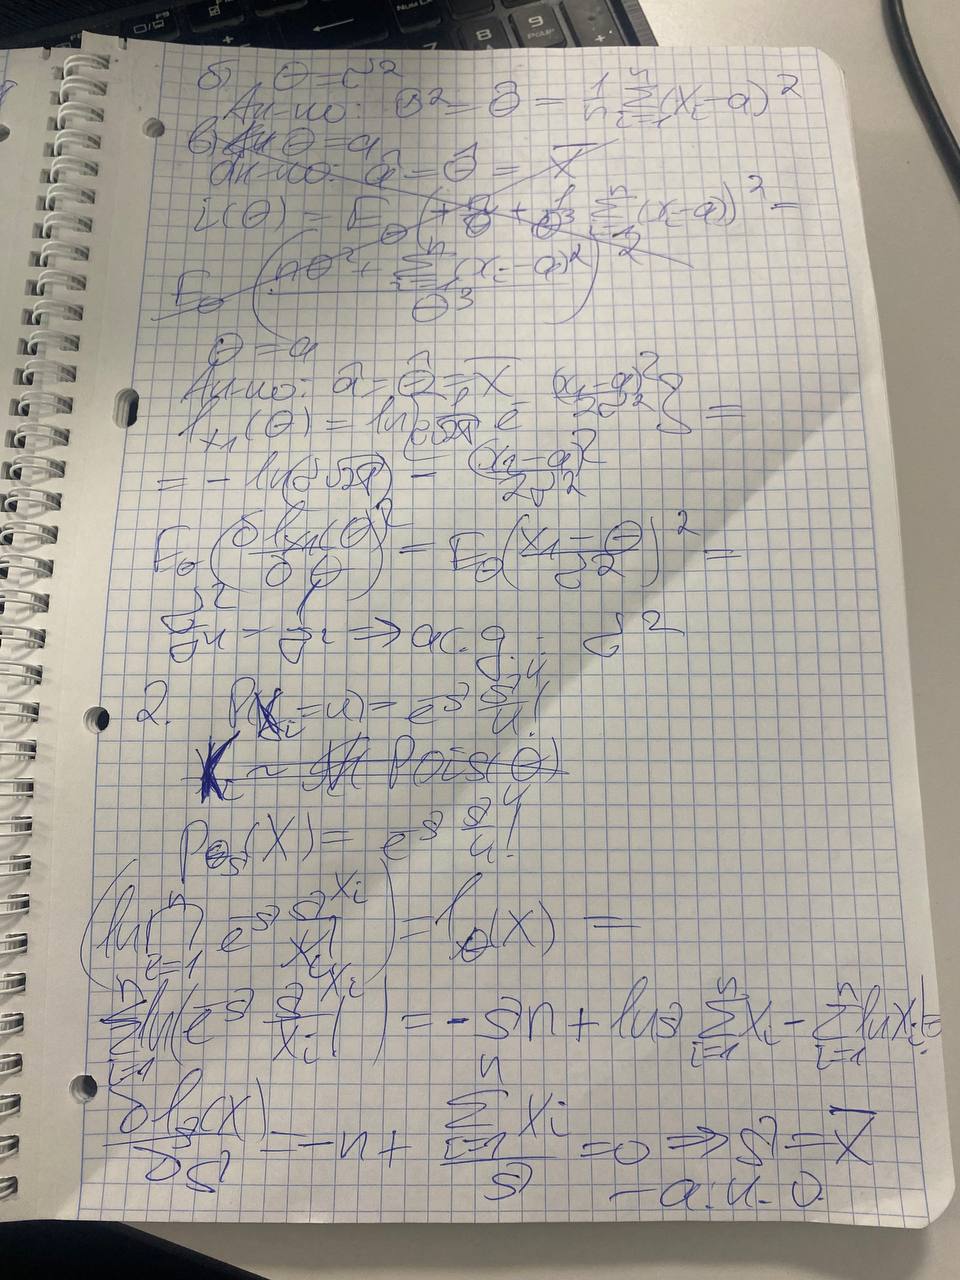 б) θ = σ²
Ан-но: σ² = θ̂ = 1/n Σ_{i=1}^{n} (x_i − a)²
в) θ = a
Ан-но: â = θ̂ = X̄
i(θ) = E_θ (+ n/θ + 1/θ³ Σ_{i=1}^{n} (x_i − a))² =
E_θ ( (nθ² + Σ_{i=1}^{n} (x_i − a)²) / θ³ )
θ = a
Ан-но: â = θ̂ = X̄
l_{x1}(θ) = ln { 1/(σ√2π) e^{−(x_1 − a)²/2σ²} } =
= − ln(σ√2π) − (x_1 − a)²/2σ²
E_θ (∂l_{x1}(θ)/∂θ)² = E_θ ((x_1 − θ)/σ²)² =
σ²/σ⁴ = 1/σ² ⇒ ас. д. : σ²
2. P(X_i = k) = e^{−λ} λ^k/k!
X_i ~ Pois(θ)
P_λ(X) = e^{−λ} λ^k/k!
(ln Π_{i=1}^{n} e^{−λ} λ^{x_i}/x_i!) = l_λ(X) =
Σ_{i=1}^{n} ln(e^{−λ} λ^{x_i}/x_i!) = −λn + lnλ Σ_{i=1}^{n} x_i − Σ_{i=1}^{n} ln x_i! =
∂l_λ(X)/∂λ = −n + Σ_{i=1}^{n} x_i/λ = 0 ⇒ λ = X̄